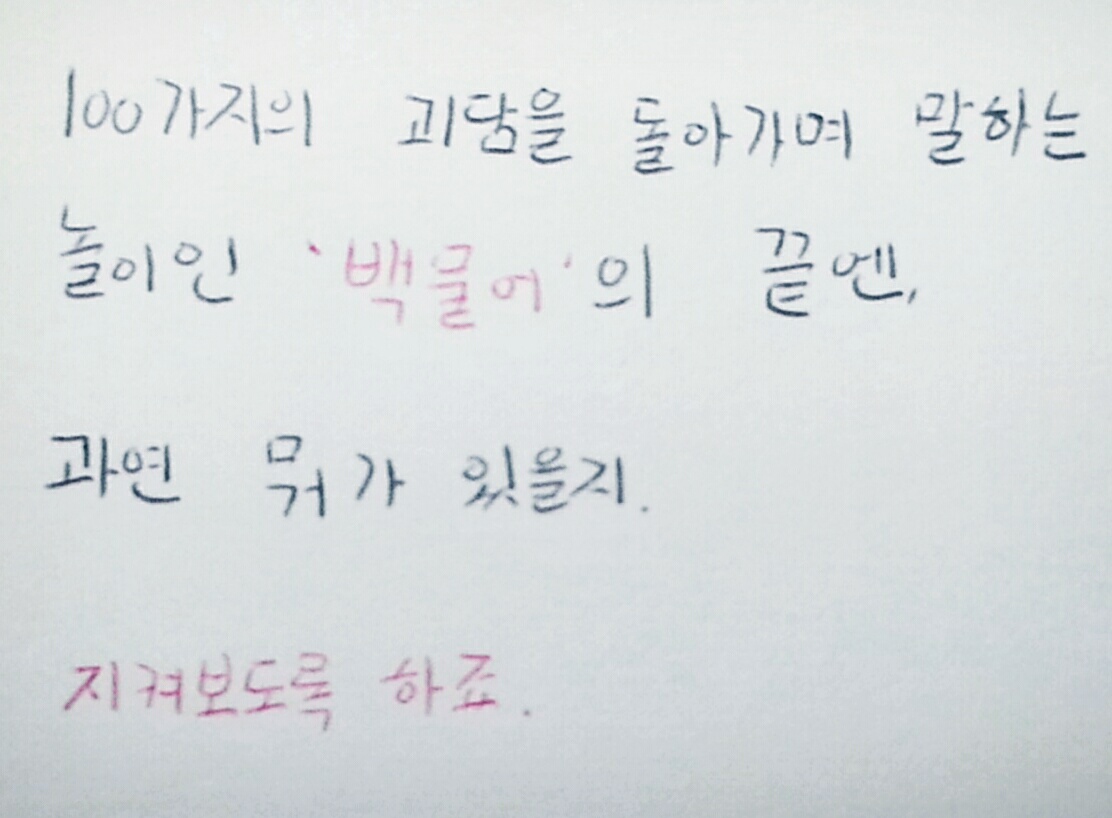 100가지의 괴담을 돌아가며 말하는
놀이인 '백물어'의 끝엔,
과연 뭐가 있을지.
지켜보도록 하죠.